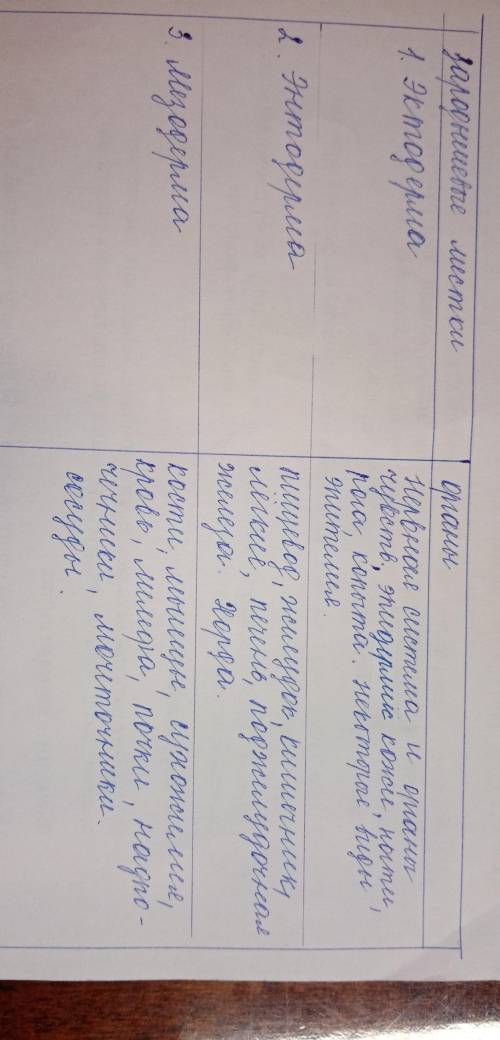 Зародышевые листки
органы
1. Эктодерма
Нервная система и органы
чувств, эпидермис кожи, ногти,
рога, копыта. некоторые виды
эпителия.
2. Энтодерма
пищевод, желудок, кишечник,
лёгкие, печень, поджелудочная
железа. Хорда.
3. Мезодерма
кости, мышцы, сухожилия,
кровь, лимфа, почки, надпо-
чечники, мочеточники.
сосуды.